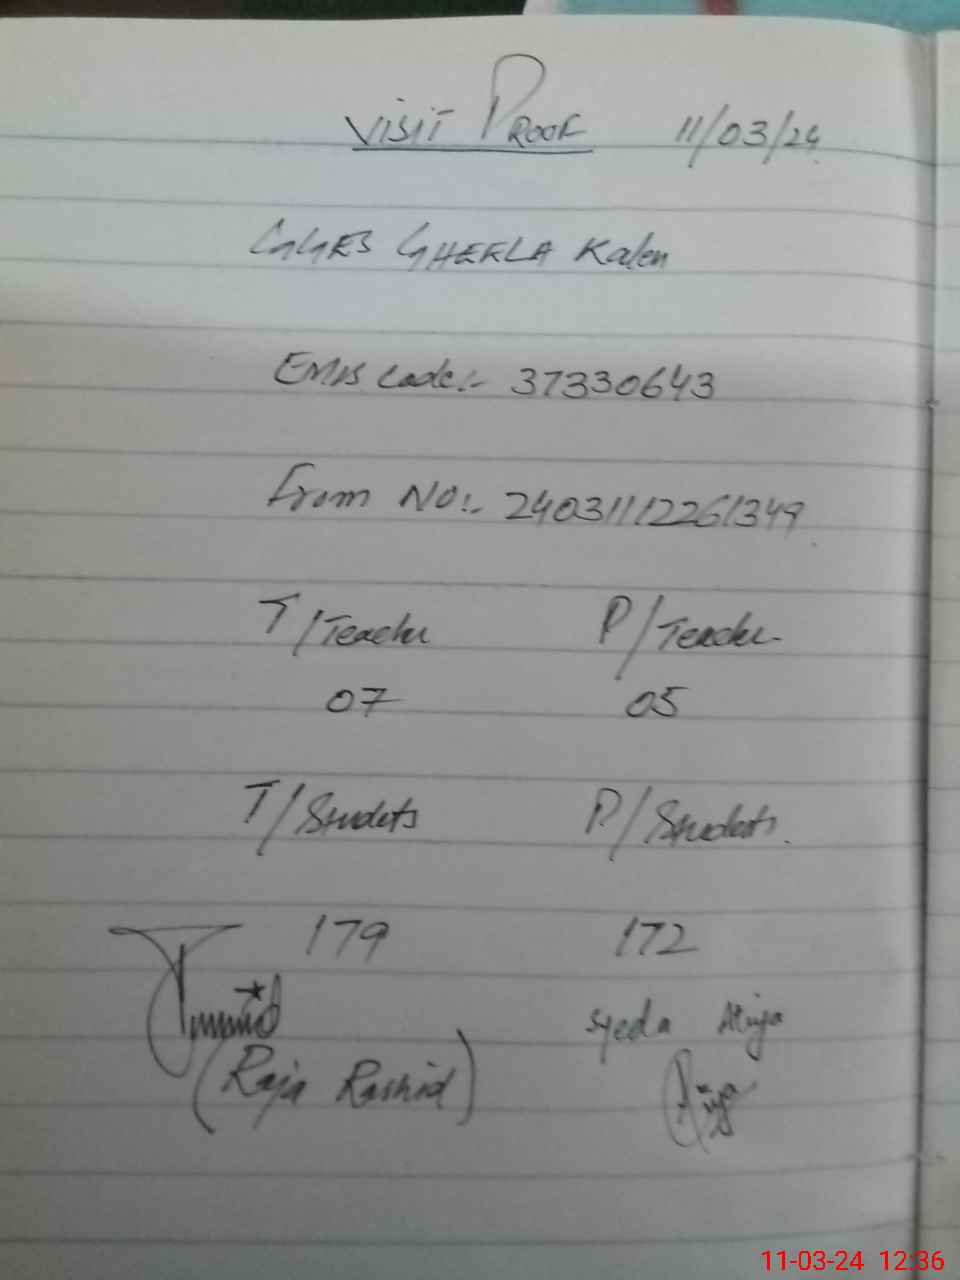 VISIT PROOF 11/03/24
GGES GHEELA Kalan
EMIS Code:- 37330643
From NO:- 24031112261349
T/Teacher P/Teacher
07 05
T/Students P/Students.
179 172
Syeda
(Raja Rashid)
11-03-24 12:36